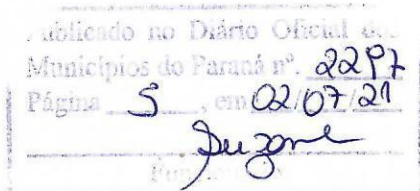 Publicado no Diário Oficial dos
Municípios do Paraná nº. 2297
Página 5, em 02/07/21
Suzane